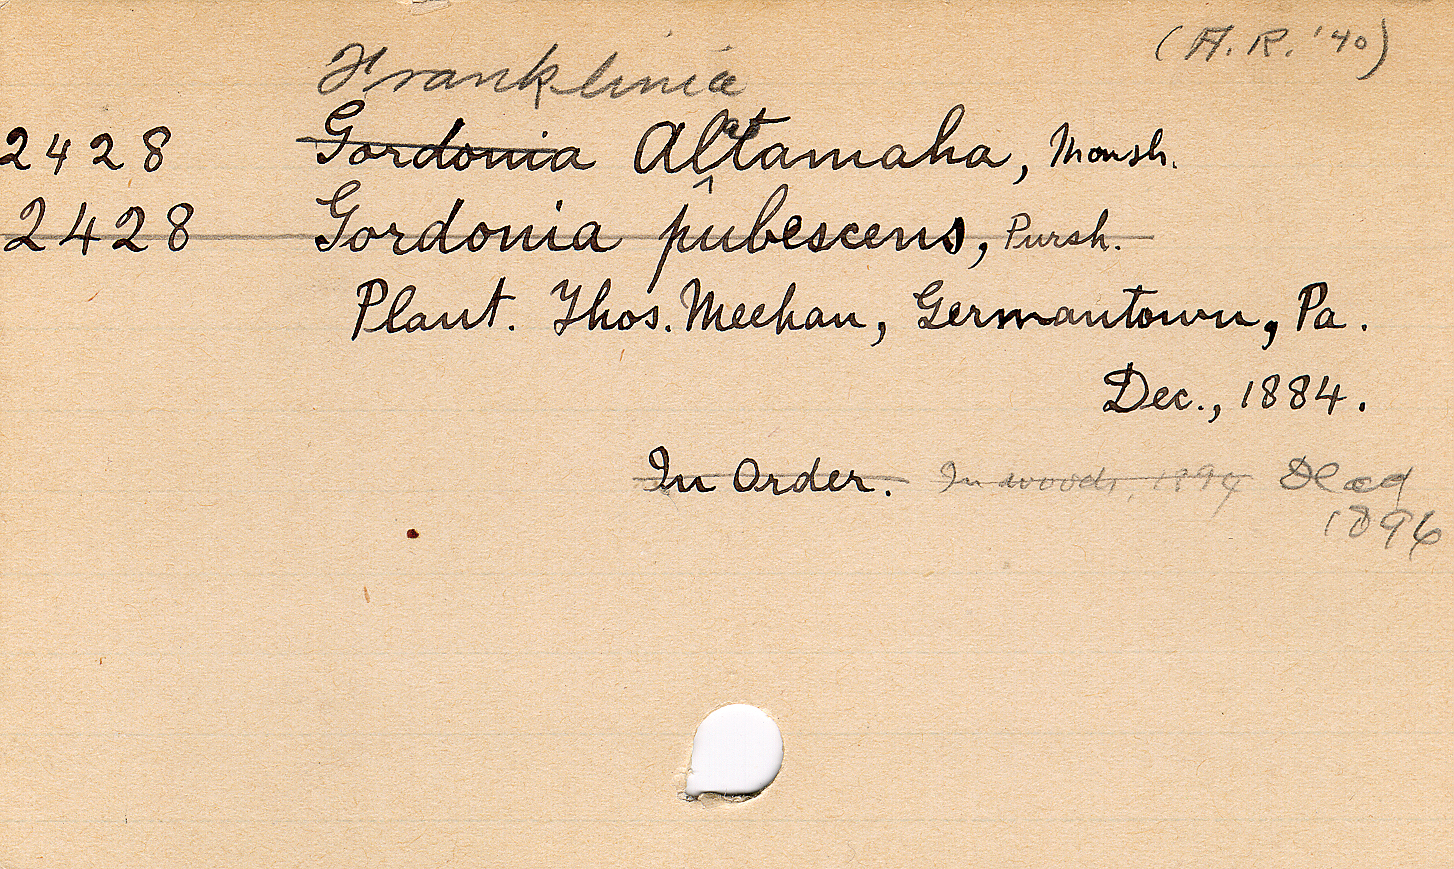 (A.R. '40)
Franklinia
2428 Gordonia Alatamaha, Marsh.
2428 Gordonia pubescens, Pursh.
Plant. Thos. Meehan, Germantown, Pa.
Dec., 1884.
In Order. In woods, 1894 Dead
1896